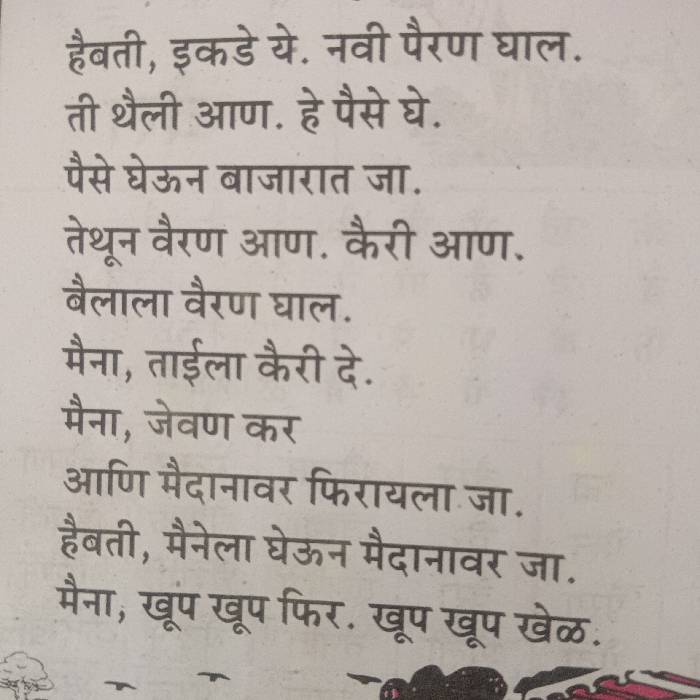 हैबती, इकडे ये. नवी पैरण घाल.
ती थैली आण. हे पैसे घे.
पैसे घेऊन बाजारात जा.
तेथून वैरण आण. कैरी आण.
बैलाला वैरण घाल.
मैना, ताईला कैरी दे.
मैना, जेवण कर
आणि मैदानावर फिरायला जा.
हैबती, मैनेला घेऊन मैदानावर जा.
मैना, खूप खूप फिर. खूप खूप खेळ.